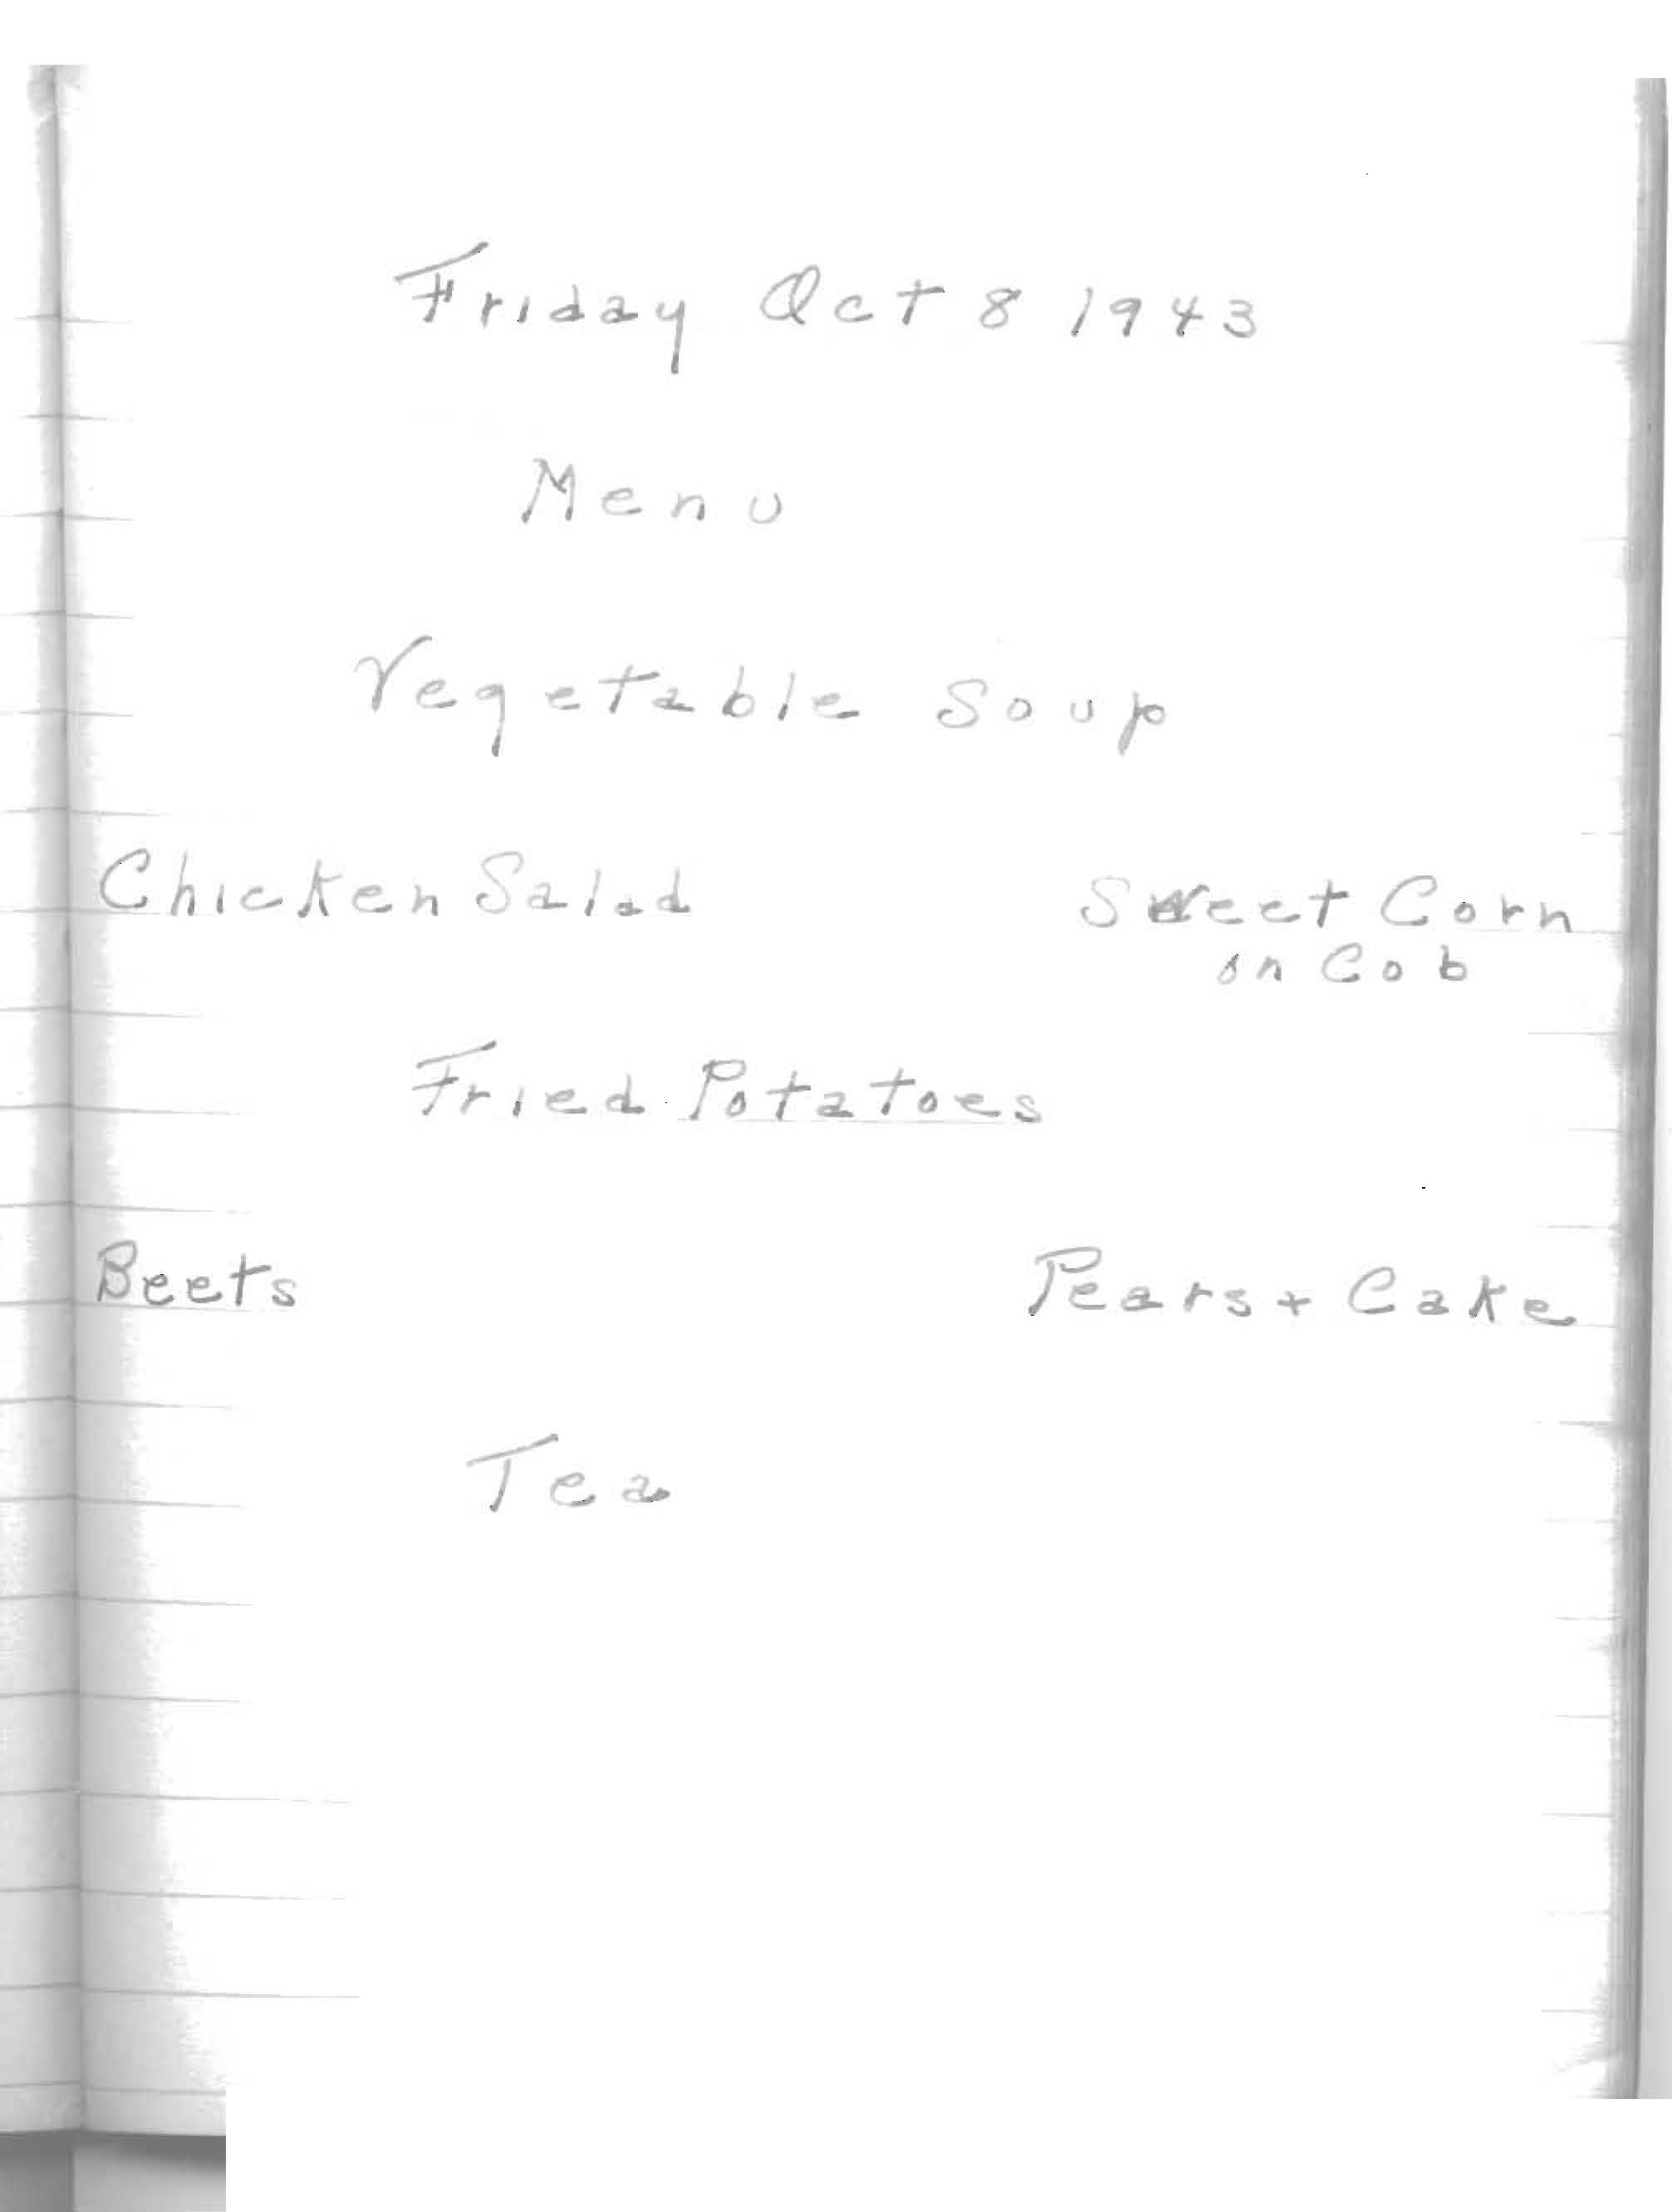 Friday Oct 8 1943
Menu
Vegetable Soup
Chicken Salad Sweet Corn
on Cob
Fried Potatoes
Beets Pears + Cake
Tea